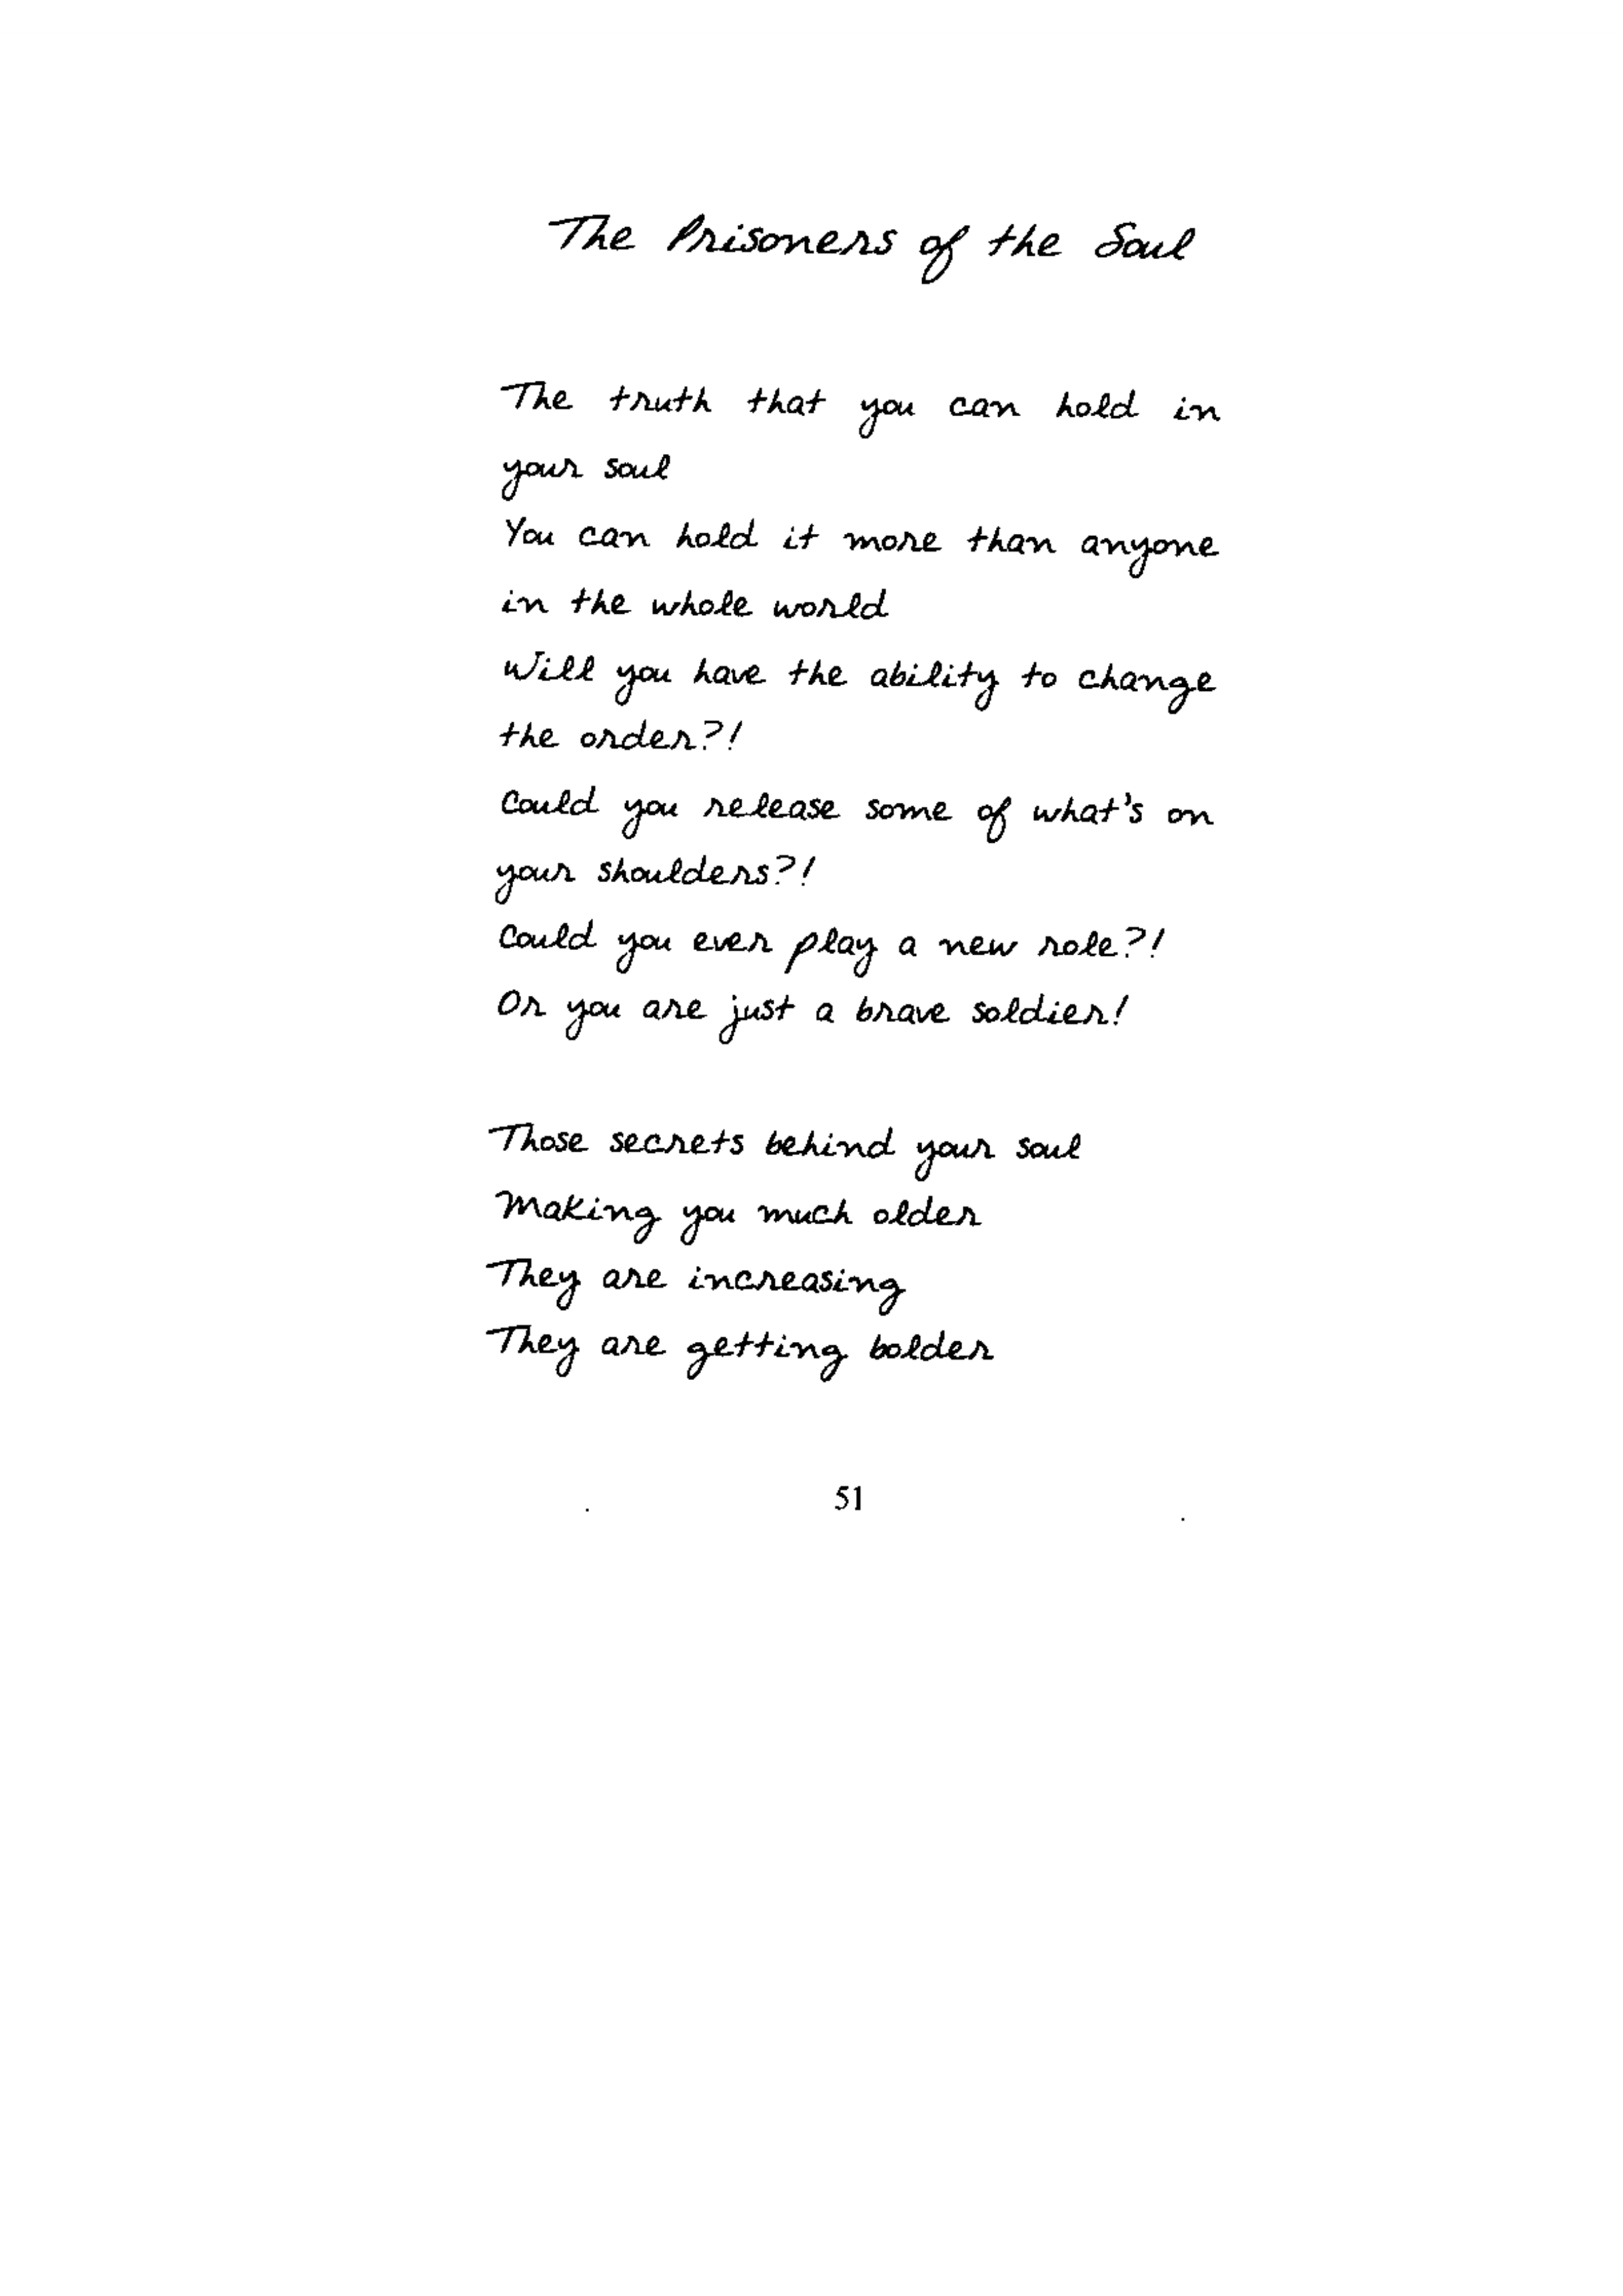 The Prisoners of the Soul
The truth that you can hold in
your soul
You can hold it more than anyone
in the whole world
Will you have the ability to change
the order?!
Could you release some of what's on
your shoulders?!
Could you ever play a new role?!
Or you are just a brave soldier!
Those secrets behind your soul
Making you much older
They are increasing
They are getting bolder
51